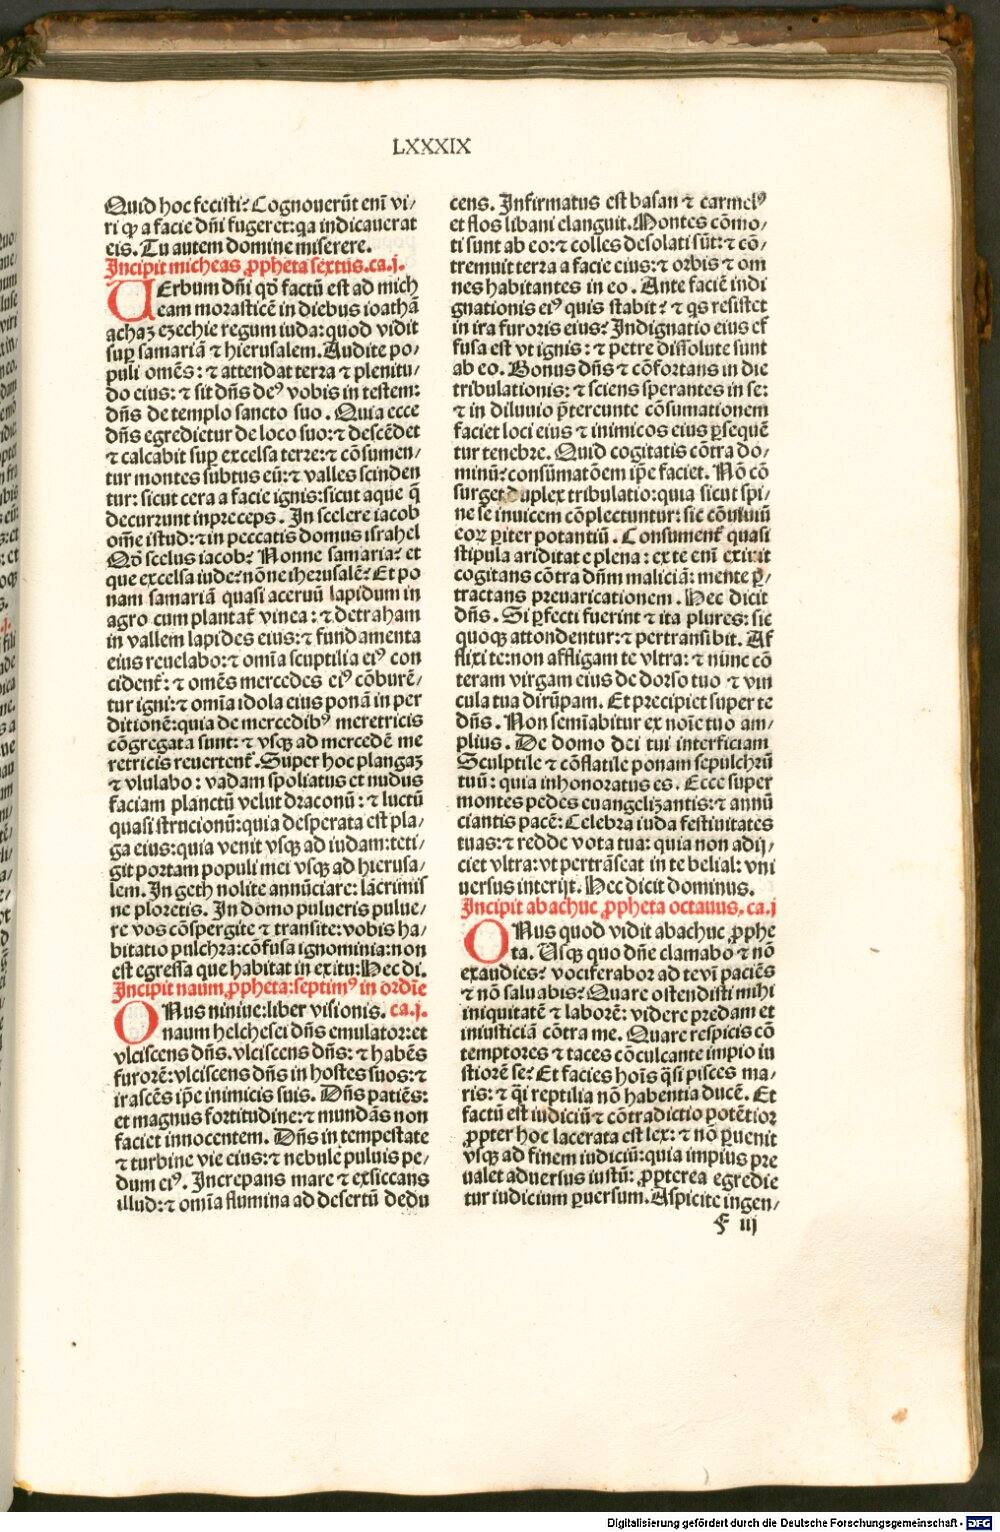 LXXXIX
Quid hoc fecisti? Cognouerūt enī vi/
ri qꝫ a facie dn̄i fugeret: qa indicauerat
eis. Tu autem domine miserere.
Incipit micheas ꝓpheta sextus. ca. j.
UErbum dn̄i qd̄ factū est ad mich
eam morasticē in diebus ioathā
achaz ezechie regum iuda: quod vidit
sup̲ samariā ⁊ hierusalem. Audite po/
puli omēs: ⁊ attendat terra ⁊ plenitu/
do eius: ⁊ sit dn̄s deꝰ vobis in testem:
dn̄s de templo sancto suo. Quia ecce
dn̄s egredietur de loco suo: ⁊ descēdet
⁊ calcabit sup̲ excelsa terre: ⁊ cōsumen/
tur montes subtus eū: ⁊ valles scinden
tur: sicut cera a facie ignis: sicut aque q̄
decurrunt inpreceps. In scelere iacob
om̄e istud: ⁊ in peccatis domus israhel
Qd̄ scelus iacob? Nonne samaria? et
que excelsa iude? nōne iherusalē? Et po
nam samariā quasi aceruū lapidum in
agro cum plantat᷒ vinea: ⁊ detraham
in vallem lapides eius: ⁊ fundamenta
eius reuelabo: ⁊ omīa sculptilia eiꝰ con
cident᷒: ⁊ omēs mercedes eiꝰ cōburē/
tur igni: ⁊ omīa idola eius ponā in per
ditionē: quia de mercedibꝰ meretricis
cōgregata sunt: ⁊ vsqꝫ ad mercedē me
retricis reuertent᷒. Super hoc plangaꝫ
⁊ vlulabo: vadam spoliatus et nudus
faciam planctū velut draconū: ⁊ luctū
quasi strucionū: quia desperata est pla/
ga eius: quia venit vsqꝫ ad iudam: teti/
git portam populi mei vsqꝫ ad hierusa/
lem. In geth nolite annūciare: lacrimis
ne ploretis. In domo pulueris pulue/
re vos cōspergite ⁊ transite: vobis ha/
bitatio pulchra: cōfusa ignominia: non
est egressa que habitat in exitu: Hec di.
Incipit naum ꝓpheta: septimꝰ in ordīe
ONus niniue: liber visionis. ca. j.
naum helchesei dn̄s emulator: et
vlciscens dn̄s. vlciscens dn̄s: ⁊ habēs
furorē: vlciscens dn̄s in hostes suos: ⁊
irascēs ip̄e inimicis suis. Dn̄s patiēs:
et magnus fortitudine: ⁊ mundās non
faciet innocentem. Dn̄s in tempestate
⁊ turbine vie eius: ⁊ nebule puluis pe/
dum eiꝰ. Increpans mare ⁊ exsiccans
illud: ⁊ omīa flumina ad desertū dedu
cens. Infirmatus est basan ⁊ carmelꝰ
et flos libani elanguit. Montes cōmo/
ti sunt ab eo: ⁊ colles desolati sūt: ⁊ cō/
tremuit terra a facie eius: ⁊ orbis ⁊ om
nes habitantes in eo. Ante faciē indi
gnationis eiꝰ quis stabit? ⁊ qs resistet
in ira furoris eius? Indignatio eius ef
fusa est vt ignis: ⁊ petre dissolute sunt
ab eo. Bonus dn̄s ⁊ cōfortans in die
tribulationis: ⁊ sciens sperantes in se:
⁊ in diluuio p̄tereunte cōsumationem
faciet loci eius ⁊ inimicos eius ꝑsequē
tur tenebre. Quid cogitatis cōtra do/
minū? consūmatōem ip̄e faciet. Nō cō
surget duplex tribulatio: quia sicut spi/
ne se inuicem cōplectuntur: sic cōuiuiū
eoꝝ ꝑiter potantiū. Consument᷒ quasi
stipula ariditate plena: ex te enī exiuit
cogitans cōtra dn̄m maliciā: mente ꝑ/
tractans preuaricationem. Hec dicit
dn̄s. Si ꝑfecti fuerint ⁊ ita plures: sic
quoqꝫ attondentur: ⁊ pertransibit. Af
flixi te: non affligam te vltra: ⁊ nunc cō
teram virgam eius de dorso tuo ⁊ vin
cula tua dirūpam. Et precipiet super te
dn̄s. Non semīabitur ex noīe tuo am/
plius. De domo dei tui interficiam
Sculptile ⁊ cōflatile ponam sepulchrū
tuū: quia inhonoratus es. Ecce super
montes pedes euangelizantis: ⁊ annū
ciantis pacē: Celebra iuda festiuitates
tuas: ⁊ redde vota tua: quia non adij/
ciet vltra: vt pertrāseat in te belial: vni
uersus interijt. Hec dicit dominus.
Incipit abachuc ꝓpheta octauus. ca. j
ONus quod vidit abachuc ꝓphe
ta. Usqꝫ quo dn̄e clamabo ⁊ nō
exaudies? vociferabor ad te vī paciēs
⁊ nō saluabis? Quare ostendisti mihi
iniquitatē ⁊ laborē: videre predam et
iniusticiā cōtra me. Quare respicis cō
temptores ⁊ taces cōculcante impio iu
stiorē se? Et facies hoīs q̄si pisces ma/
ris: ⁊ q̄i reptilia nō habentia ducē. Et
factū est iudiciū ⁊ cōtradictio potētior
ꝓpter hoc lacerata est lex: ⁊ nō ꝑuenit
vsqꝫ ad finem iudiciū: quia impius pre
ualet aduersus iustū: ꝓpterea egredie
tur iudicium ꝑuersum. Aspicite in gen/
f iij
Digitalisierung gefördert durch die Deutsche Forschungsgemeinschaft - DFG